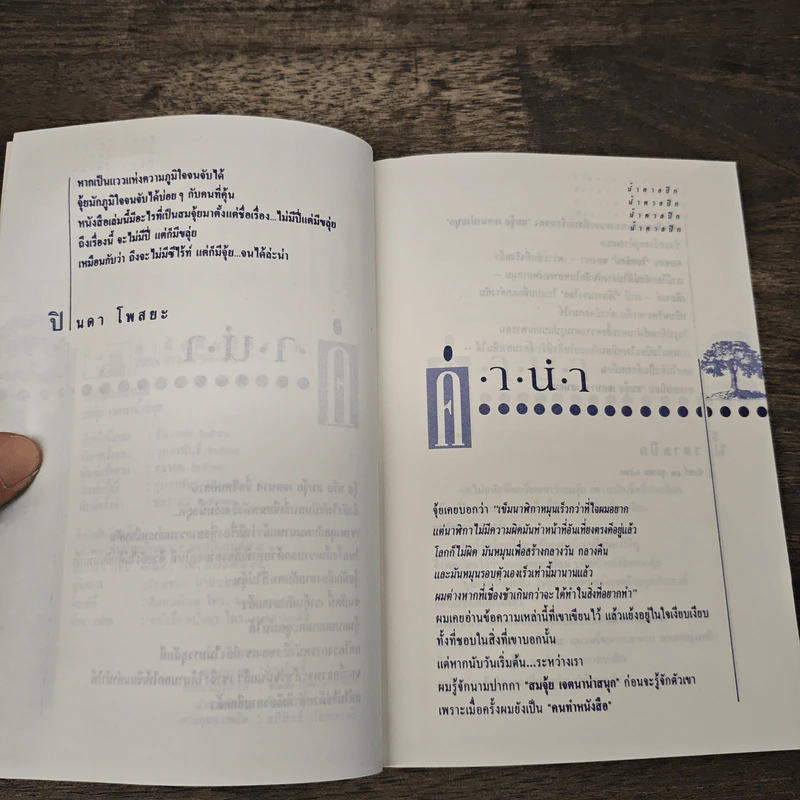 หากเป็นแววแห่งความภูมิใจจนจับได้
จุ้ยมักภูมิใจจนจับได้บ่อย ๆ กับคนที่คุ้น
หนังสือเล่มนี้มีอะไรที่เป็นสมจุ้ยมาตั้งแต่ชื่อเรื่อง...ไม่มีปี่แต่มีขลุ่ย
ถึงเรื่องนี้ จะไม่มีปี่ แต่ก็มีขลุ่ย
เหมือนกับว่า ถึงจะไม่มีซีไร้ท์ แต่ก็มีจุ้ย...จนได้ล่ะน่า
ปินดา โพสยะ
น้ำตาลปึก
น้ำตาลปึก
น้ำตาลปึก
น้ำตาลปึก
คำ·นำ
จุ้ยเคยบอกว่า "เข็มนาฬิกาหมุนเร็วกว่าที่ใจผมอยาก
แต่นาฬิกาไม่มีความผิดมันทำหน้าที่อันเที่ยงตรงดีอยู่แล้ว
โลกก็ไม่ผิด มันหมุนเพื่อสร้างกลางวัน กลางคืน
และมันหมุนรอบตัวเองเร็วเท่านี้มานานแล้ว
ผมต่างหากที่เชื่องช้าเกินกว่าจะได้ทำในสิ่งที่อยากทำ"
ผมเคยอ่านข้อความเหล่านี้ที่เขาเขียนไว้ แล้วแย้งอยู่ในใจเงียบเงียบ
ทั้งที่ชอบในสิ่งที่เขาบอกนั้น
แต่หากนับวันเริ่มต้น...ระหว่างเรา
ผมรู้จักนามปากกา "สมจุ้ย เจตนาน่าสนุก" ก่อนจะรู้จักตัวเขา
เพราะเมื่อครั้งผมยังเป็น "คนทำหนังสือ"